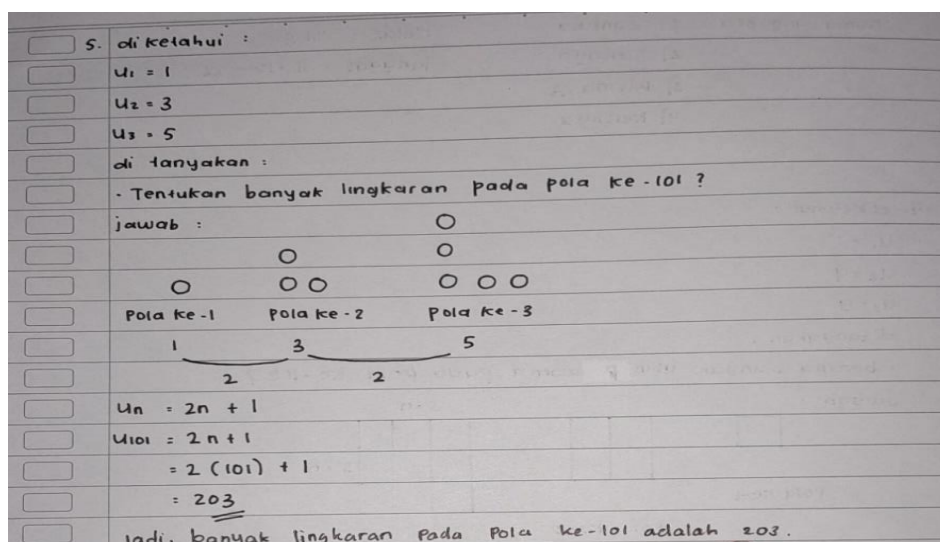 5. diketahui :
U1 = 1
U2 = 3
U3 = 5
di tanyakan :
- Tentukan banyak lingkaran pada pola ke - 101 ?
jawab :
Pola ke - 1 Pola ke - 2 Pola ke - 3
1 3 5
2 2
Un = 2n + 1
U101 = 2n + 1
= 2 (101) + 1
= 203
Jadi, banyak lingkaran Pada Pola ke - 101 adalah 203.